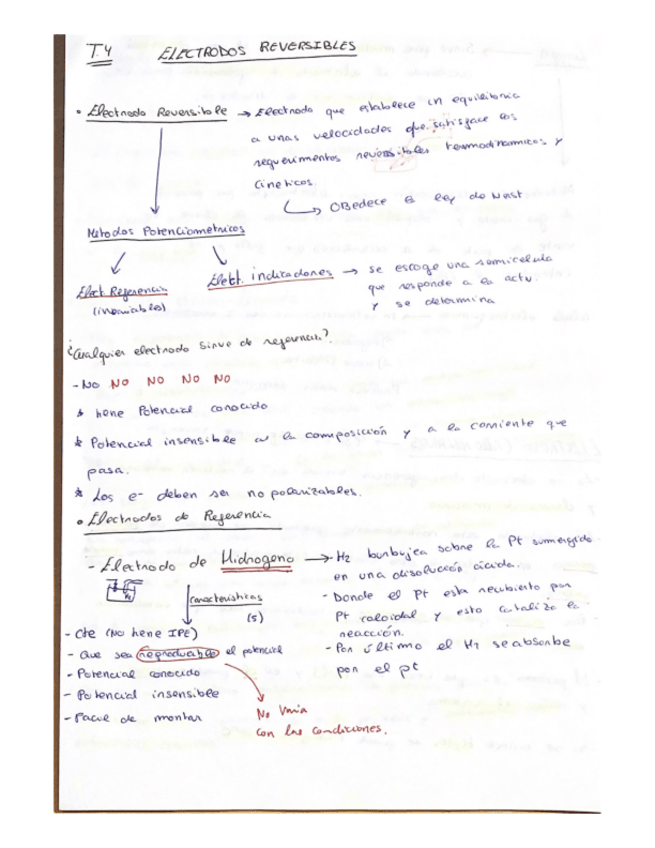 T.4 ELECTRODOS REVERSIBLES
• Electrodo Reversible → Electrodo que establece en equilibrio
a unas velocidades que satisface los
requerimentos termodinamicos y
cineticos.
↳ OBedece la ley de Nerst
Metodos Potenciometricos
Elect. Referencia
(invariables)
Elect. indicadores → se escoge una semicelula
que responde a la actv.
y se determina
¿Cualquier electrodo sirve de referencia?
- NO NO NO NO NO
* tiene Potencial conocido
* Potencial insensible a la composición y a la corriente que
pasa.
* Los e- deben ser no polarizables.
• Electrodos de Referencia
- Electrodo de Hidrogeno → H2 burbujea sobre la Pt sumergido
en una disolución ácida.
- Donde el Pt esta recubierto por
Pt coloidal y esto cataliza la
reacción.
- Por último el H2 se absorbe
por el pt
caracteristicas
(5)
- Cte (No tiene IPE)
- Que sea reproducible el potencial
- Potencial conocido
- Potencial insensible
- Facil de montar
No varia
con las condiciones.